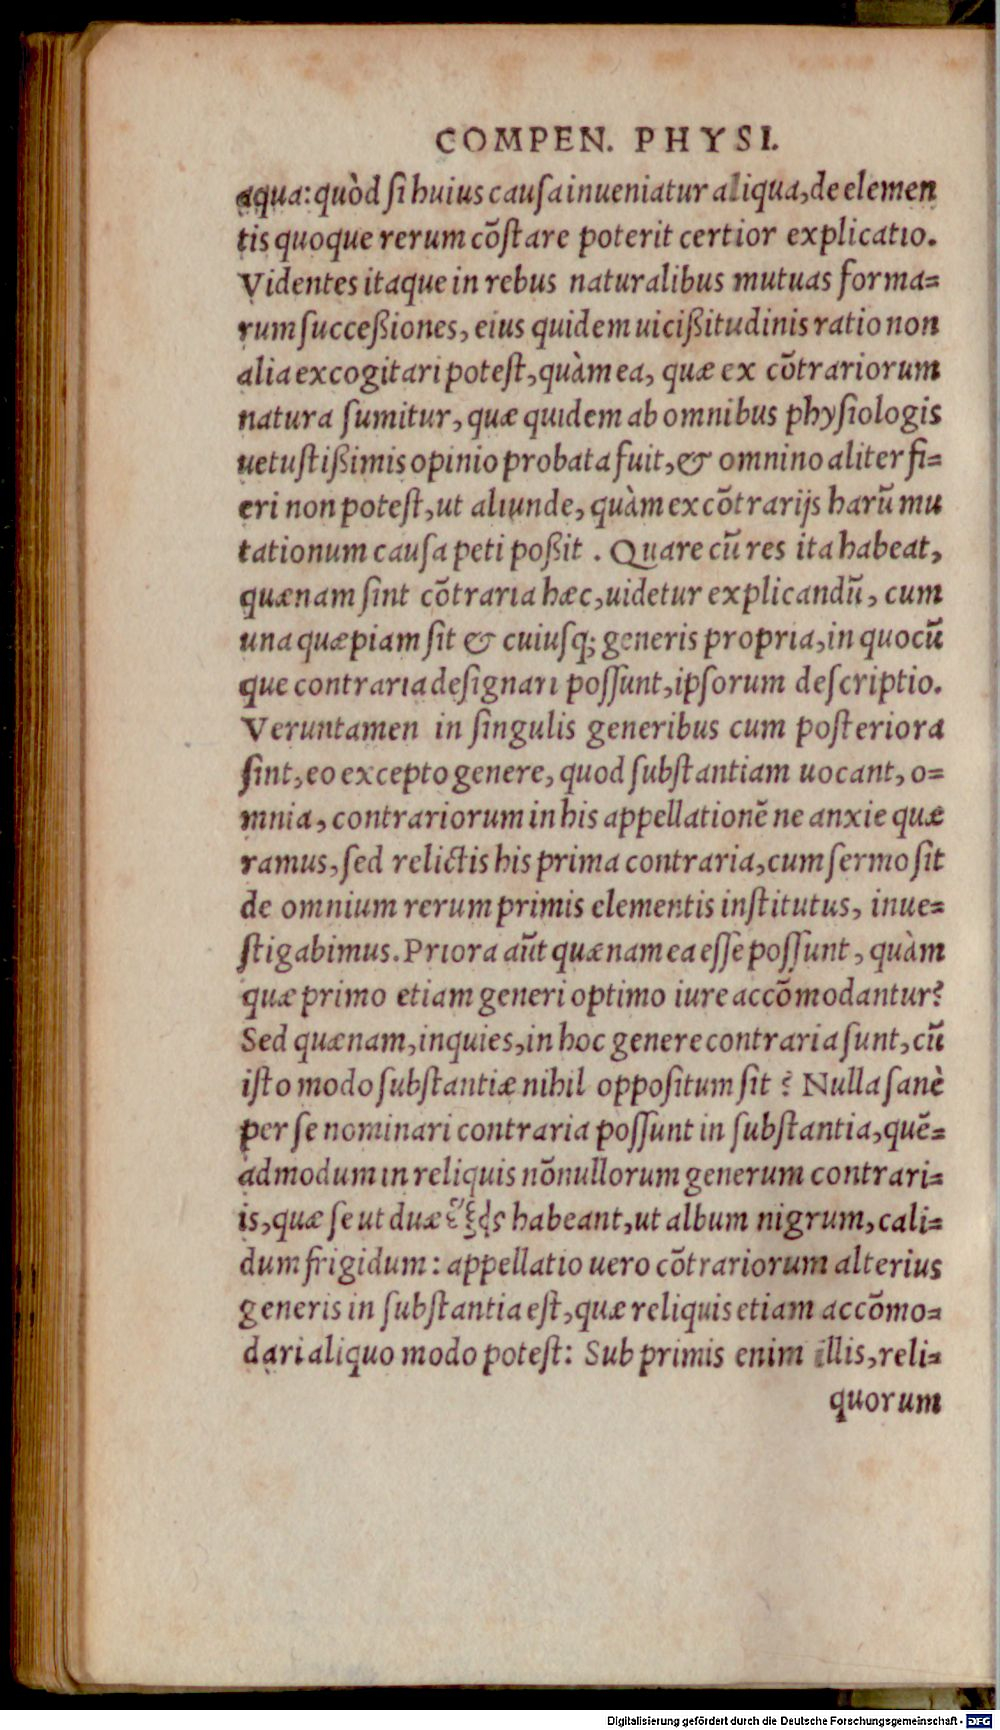 COMPEN. PHYSI.
aqua: quòd ſi huius cauſa inueniatur aliqua, de elemen
tis quoque rerum cõſtare poterit certior explicatio.
Videntes itaque in rebus naturalibus mutuas forma=
rum ſucceßiones, eius quidem uicißitudinis ratio non
alia excogitari poteſt, quàm ea, quæ ex cõtrariorum
natura ſumitur, quæ quidem ab omnibus phyſiologis
uetuſtißimis opinio probata fuit, & omnino aliter fi=
eri non poteſt, ut aliunde, quàm ex cõtrarijs harũ mu
tationum cauſa peti poßit . Quare cũ res ita habeat,
quænam ſint cõtraria hæc, uidetur explicandũ, cum
una quæpiam ſit & cuiuſq; generis propria, in quocũ
que contraria deſignari poſſunt, ipſorum deſcriptio.
Veruntamen in ſingulis generibus cum poſteriora
ſint, eo excepto genere, quod ſubſtantiam uocant, o=
mnia, contrariorum in his appellationẽ ne anxie quæ
ramus, ſed relictis his prima contraria, cum ſermo ſit
de omnium rerum primis elementis inſtitutus, inue=
ſtigabimus. Priora aũt quænam ea eſſe poſſunt, quàm
quæ primo etiam generi optimo iure accõmodantur?
Sed quænam, inquies, in hoc genere contraria ſunt, cũ
iſto modo ſubſtantiæ nihil oppoſitum ſit ? Nulla ſanè
per ſe nominari contraria poſſunt in ſubſtantia, quẽ=
admodum in reliquis nõnullorum generum contrari=
is, quæ ſe ut duæ habeant, ut album nigrum, cali=
dum frigidum: appellatio uero cõtrariorum alterius
generis in ſubſtantia eſt, quæ reliquis etiam accõmo=
dari aliquo modo poteſt: Sub primis enim illis, reli=
quorum
Digitalisierung gefördert durch die Deutsche Forschungsgemeinschaft - DFG